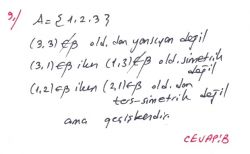 9,/ A = {1,2,3}
(3,3)∉β old. dan yansıyan değil
(3,1)∈β iken (1,3)∉β old. simetrik değil
(1,2)∈β iken (2,1)∈β old. dan
ters-simetrik değil
ama geçişkendir.
CEVAP:B